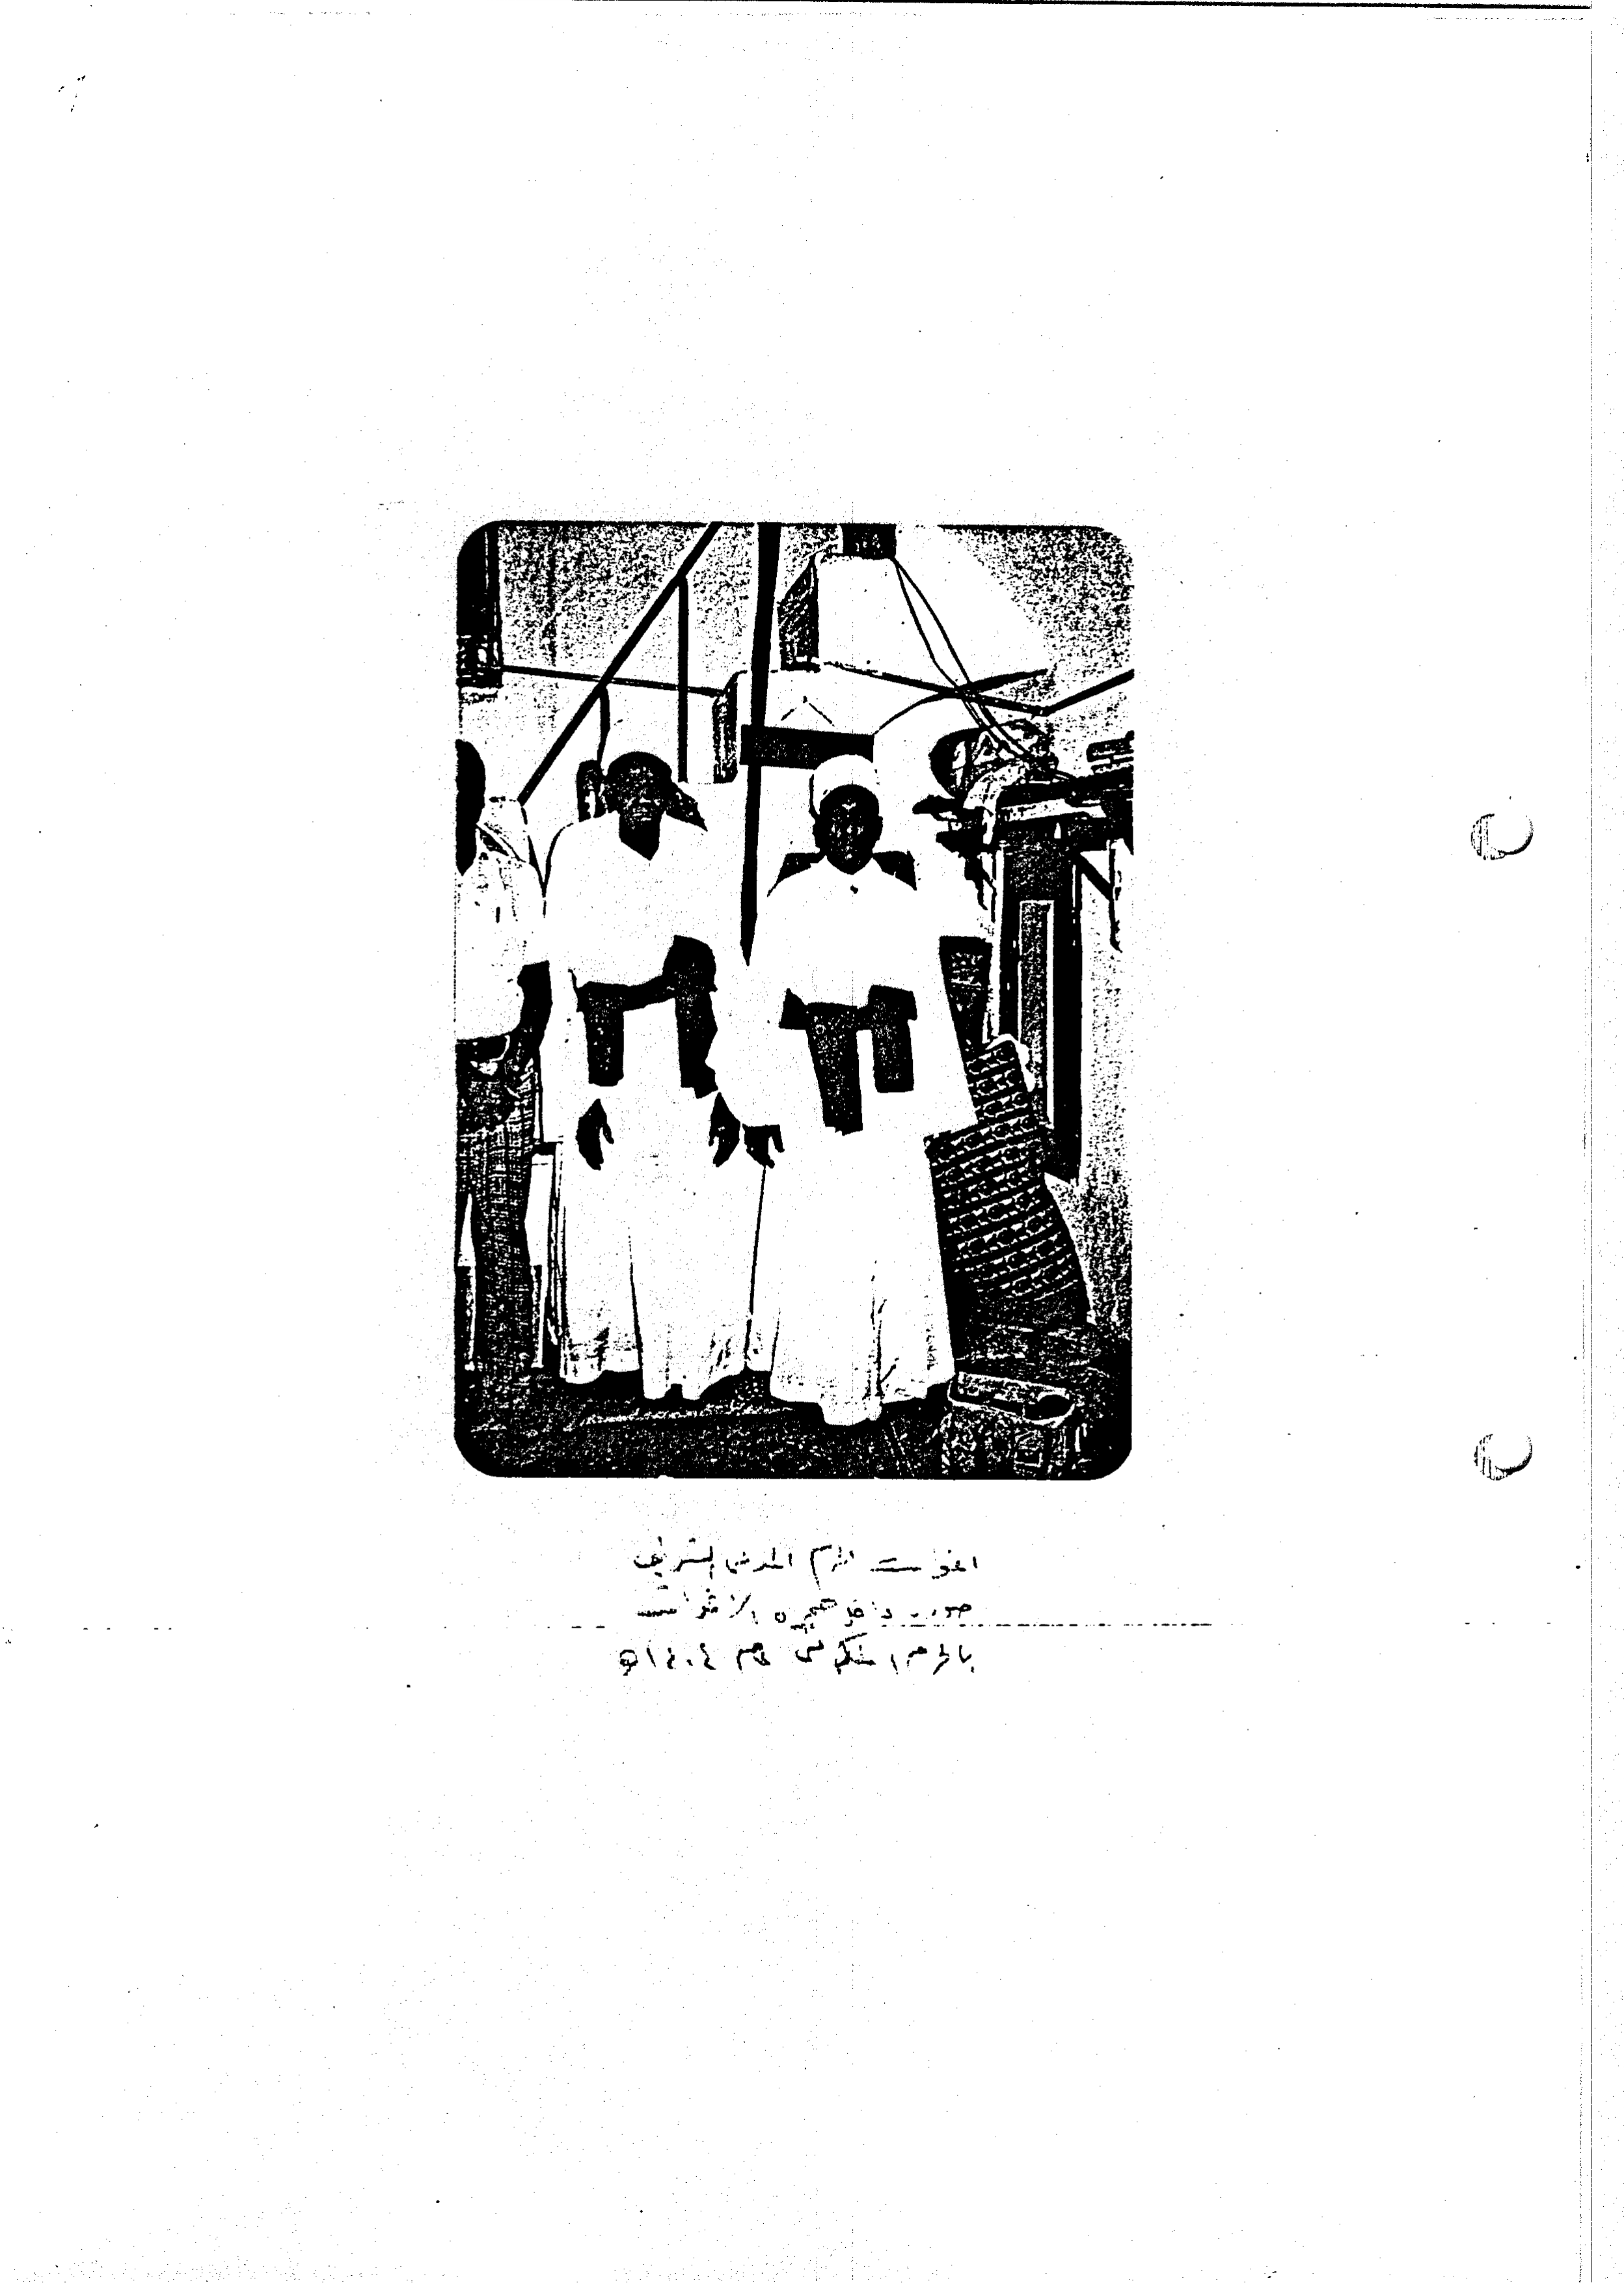 اغوات الحرم المدني الشريف
صورت داخل حجرة الاغوات
بالحرم المكي عام ١٤٠٤ه